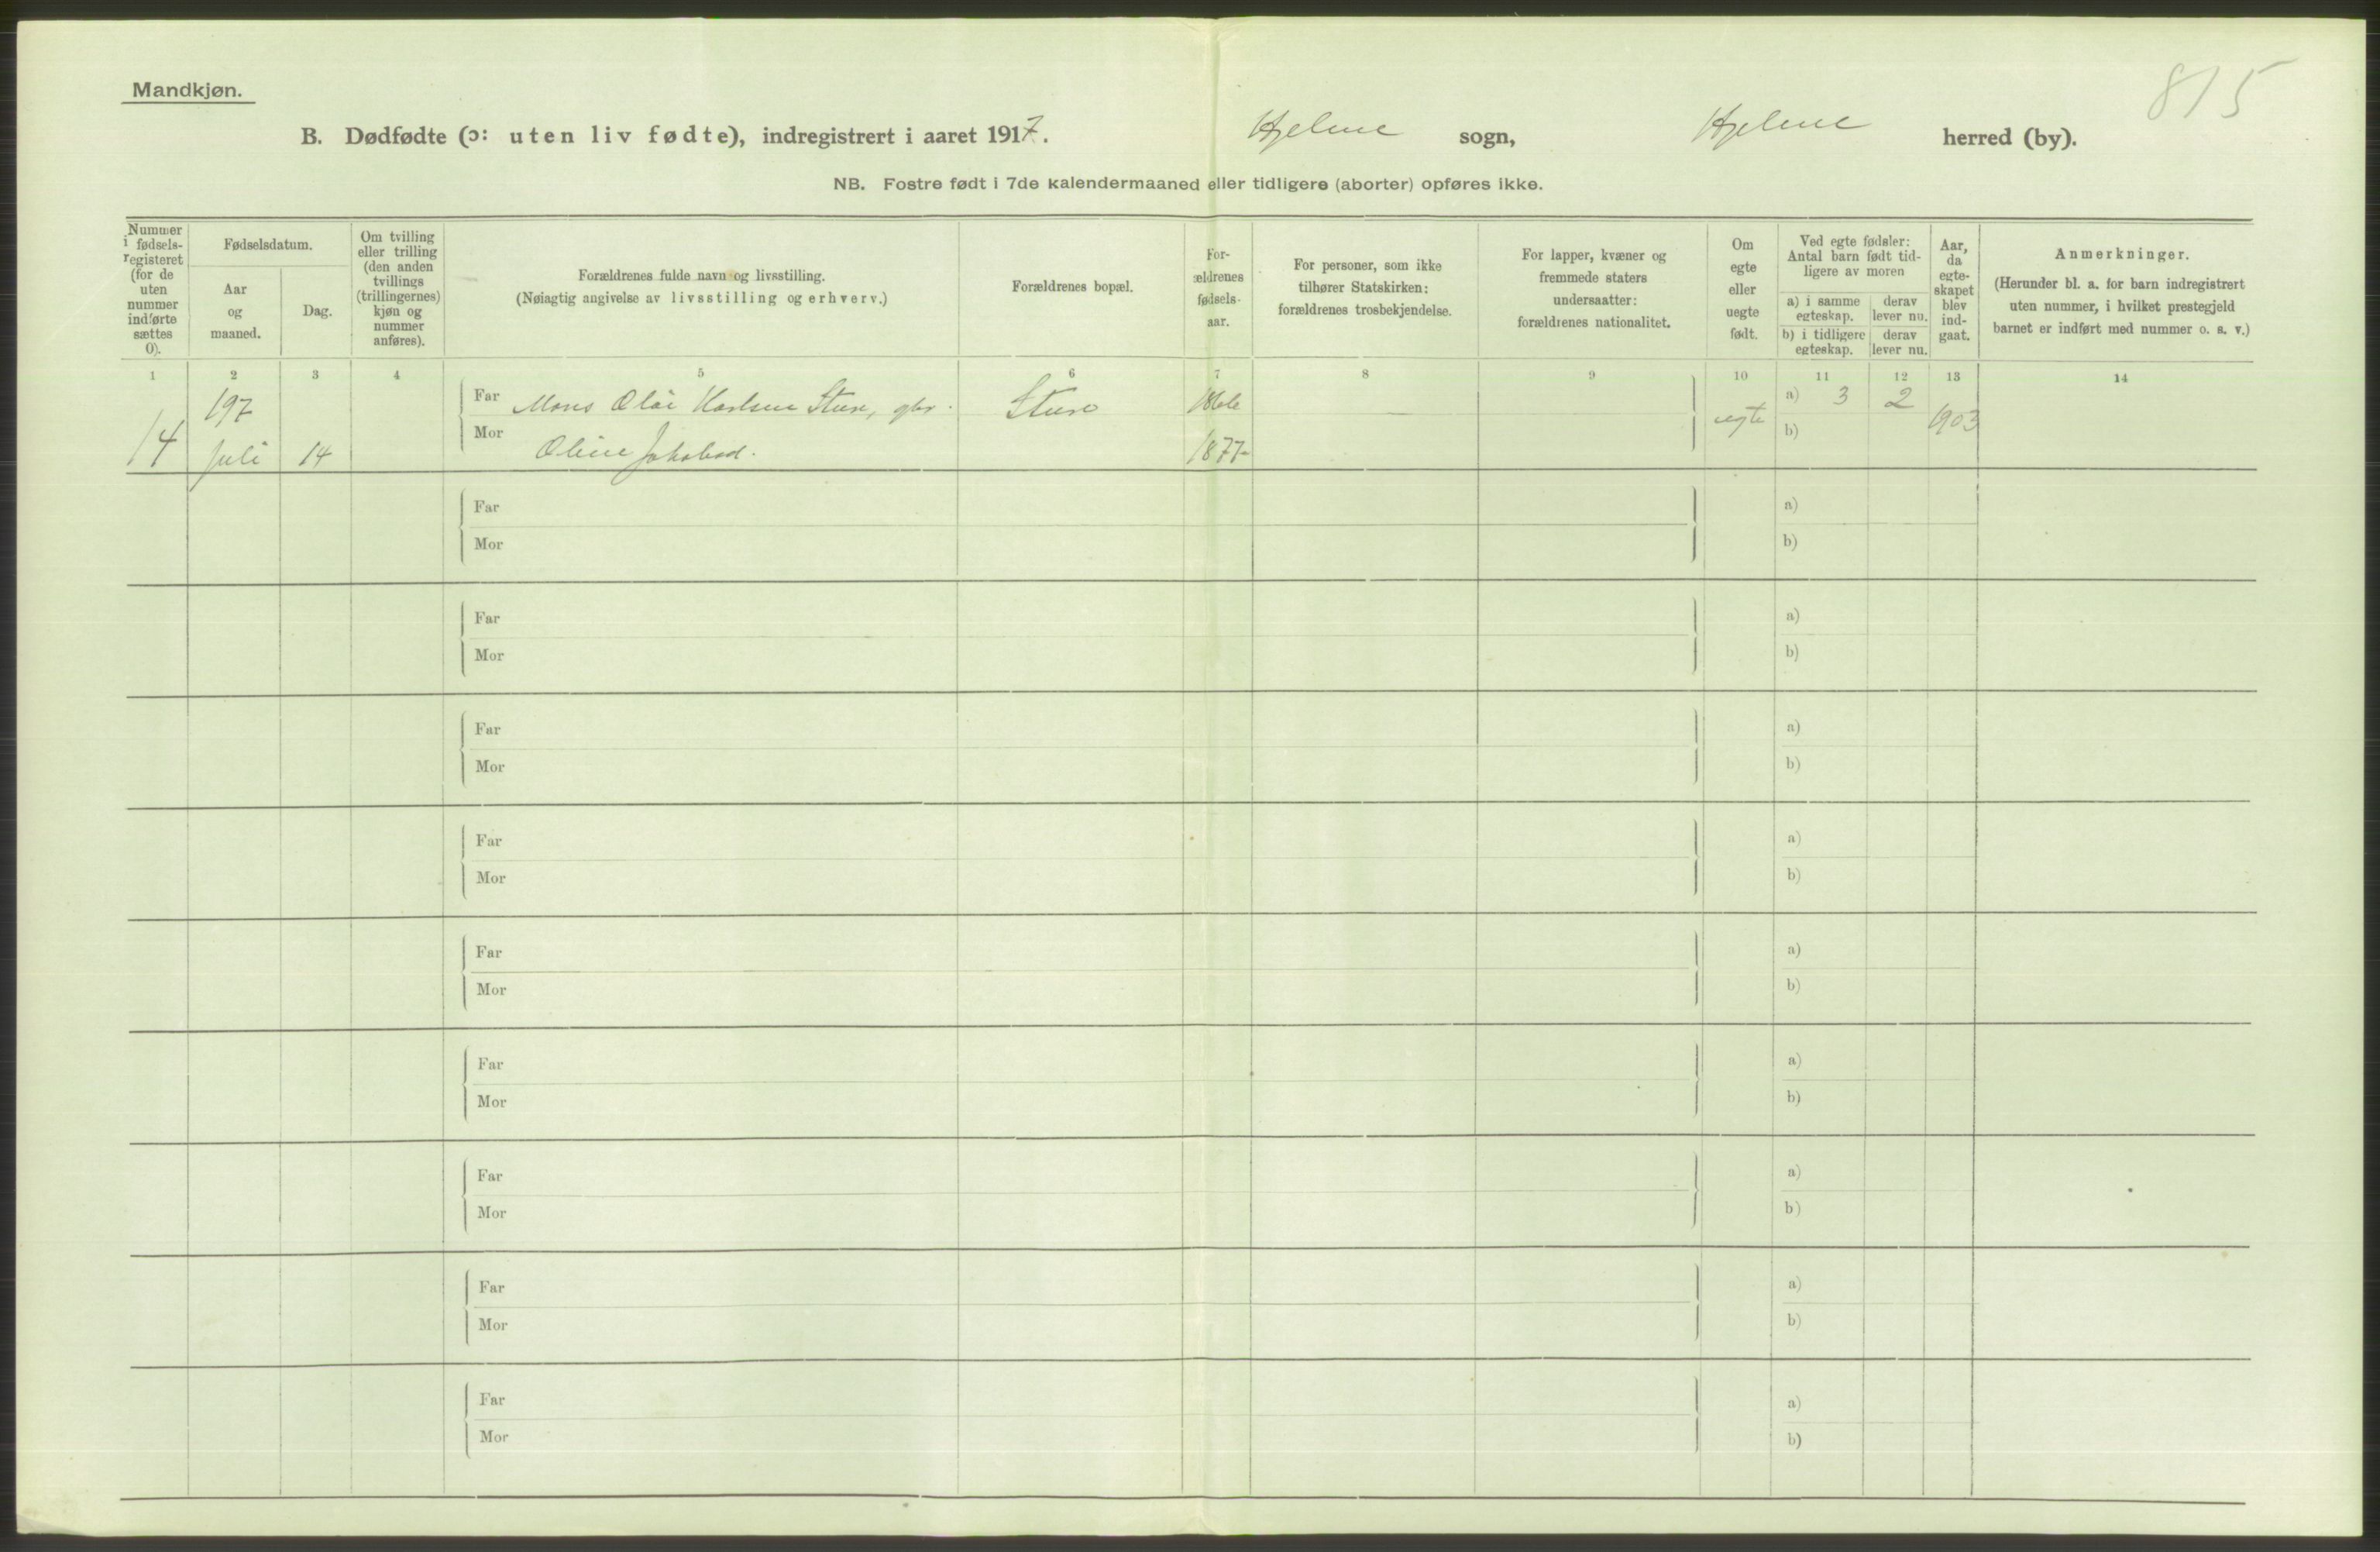 815
Mandkjøn.
B. Dødfødte (ɔ: uten liv fødte), indregistrert i aaret 1917. Hjelme sogn, Hjelme herred (by).
NB. Fostre født i 7de kalendermaaned eller tidligere (aborter) opføres ikke.
Nummer i fødsels-registeret (for de uten nummer indførte sættes 0).
Fødselsdatum.
Aar og maaned.
Dag.
Om tvilling eller trilling (den anden tvillings (trillingernes) kjøn og nummer anføres).
Forældrenes fulde navn og livsstilling.
(Nøiagtig angivelse av livsstilling og erhverv.)
Forældrenes bopæl.
For-ældrenes fødsels-aar.
For personer, som ikke tilhører Statskirken: forældrenes trosbekjendelse.
For lapper, kvæner og fremmede staters undersaatter: forældrenes nationalitet.
Om egte eller uegte født.
Ved egte fødsler: Antal barn født tid-ligere av moren
a) i samme egteskap.
derav lever nu.
b) i tidligere egteskap.
derav lever nu.
Aar, da egte-skapet blev ind-gaat.
Anmerkninger.
(Herunder bl. a. for barn indregistrert uten nummer, i hvilket prestegjeld barnet er indført med nummer o. s. v.)
1 2 3 4 5 6 7 8 9 10 11 12 13 14
197 Far Mons Olai Karlsen Sture, gbr. Sture 1866 — egte a) 3 2 1903
14 Juli 14 Mor Oline Jakobsd. 1877 b)
Far a)
Mor b)
Far a)
Mor b)
Far a)
Mor b)
Far a)
Mor b)
Far a)
Mor b)
Far a)
Mor b)
Far a)
Mor b)
Far a)
Mor b)
Far a)
Mor b)